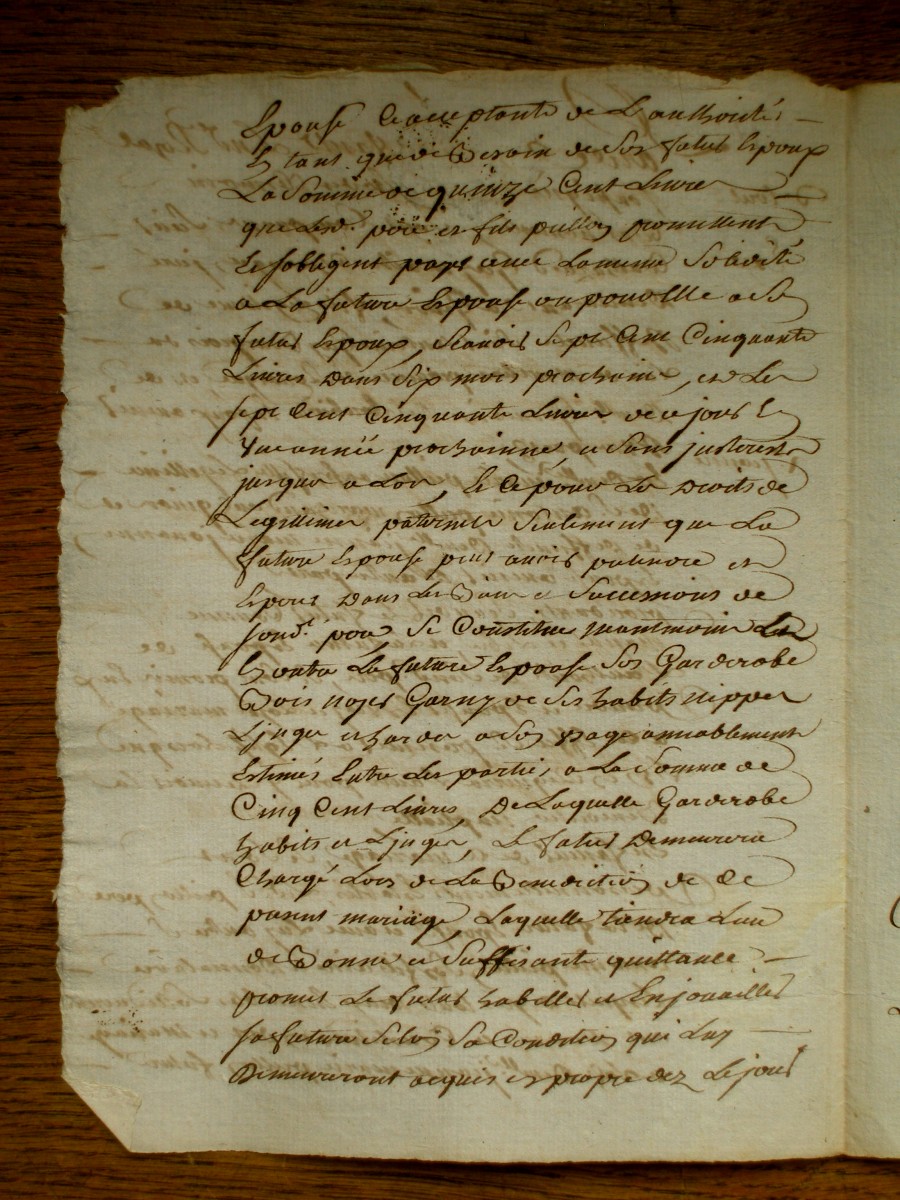 Epouse Ce acceptante de L'authorité
Et tant que de Besoin de Son futur Epoux
La Somme de quinze Cent Livres
que Lesd. pere et fils promettent
Et sobligent payer avec La meme Solidité
a La future Epouse ou pour Elle a Son
futur Epoux, Scavoir Sept Cent Cinquante
Livres Dans Six mois prochains, et Les
sept Cent Cinquante Livres de ce jour En
Une année prochainne, et Sans jnterest
jusques a Lors, Et Ce pour Les Droits de
Legitimes paternels Seulement que La
future Epouse peut avoir pretendre et
Esperer Dans Les Biens et Successions de
sond. pere Se Constitue neantmoins
En outre La future Epouse Son Garderobe
Bois noyer Garny de Ses habits nippes
Linges et hardes a Son usage amiablement
Estimés Entre Les parties a La Somme de
Cinq Cent Livres, De Laquelle Garderobe
habits et Linges, Le futur Demeurera
Chargé Lors de La Benediction de Ce
present mariage, Laquelle tiendra Lieu
de Bonne et Suffisante quittance
promet Le futur habiller et Enjoailler
sa future Selon Sa Condition qui Luy
Demeureront acquis et propre dez Le jour